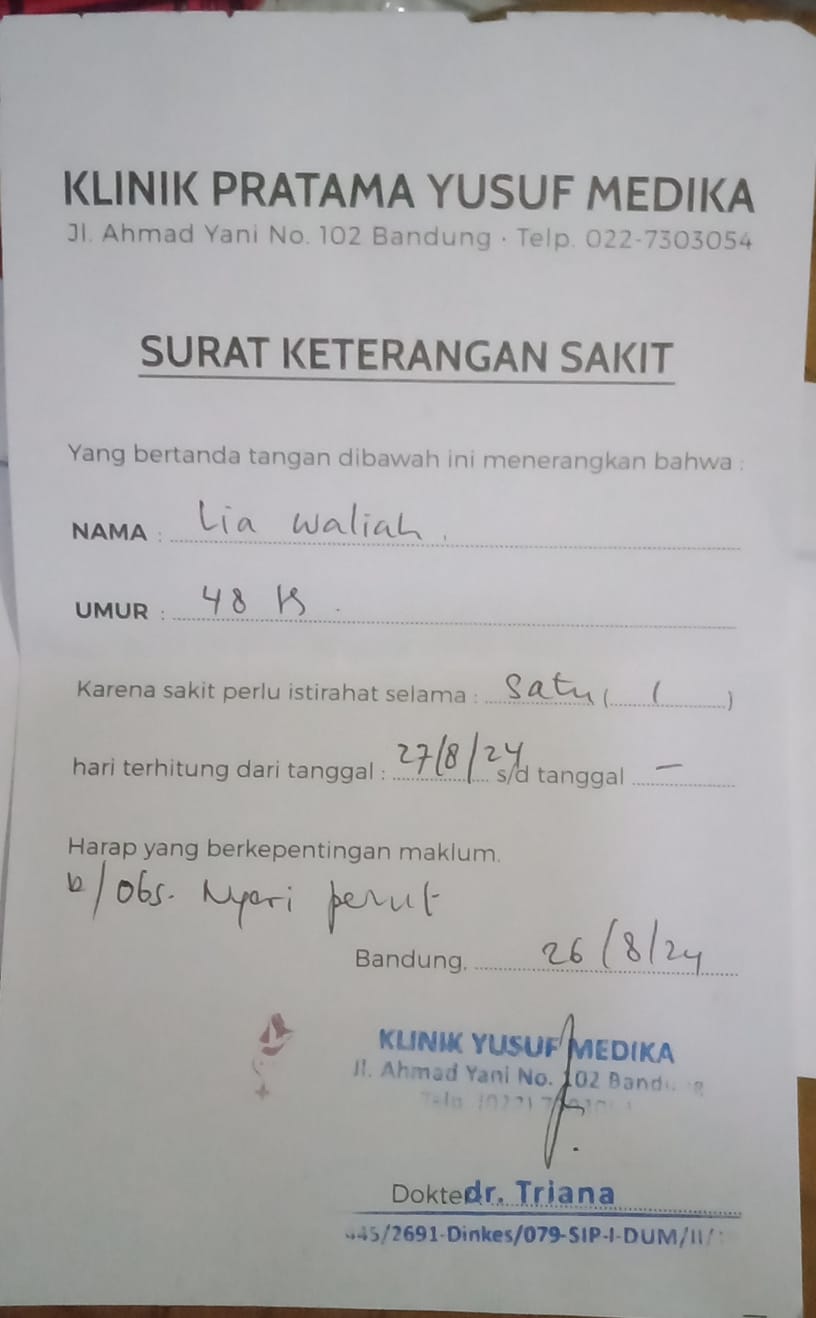 KLINIK PRATAMA YUSUF MEDIKA
Jl. Ahmad Yani No. 102 Bandung • Telp. 022-7303054
SURAT KETERANGAN SAKIT
Yang bertanda tangan dibawah ini menerangkan bahwa :
NAMA : Lia Waliah
UMUR : 48
Karena sakit perlu istirahat selama : Satu ( 1 )
hari terhitung dari tanggal : 27/8/24 s/d tanggal —
Harap yang berkepentingan maklum.
b/ Obs. Nyeri perut
Bandung, 26/8/24
KLINIK YUSUF MEDIKA
Jl. Ahmad Yani No. 102 Bandung
Dokter dr. Triana
445/2691-Dinkes/079-SIP-I-DUM/II/